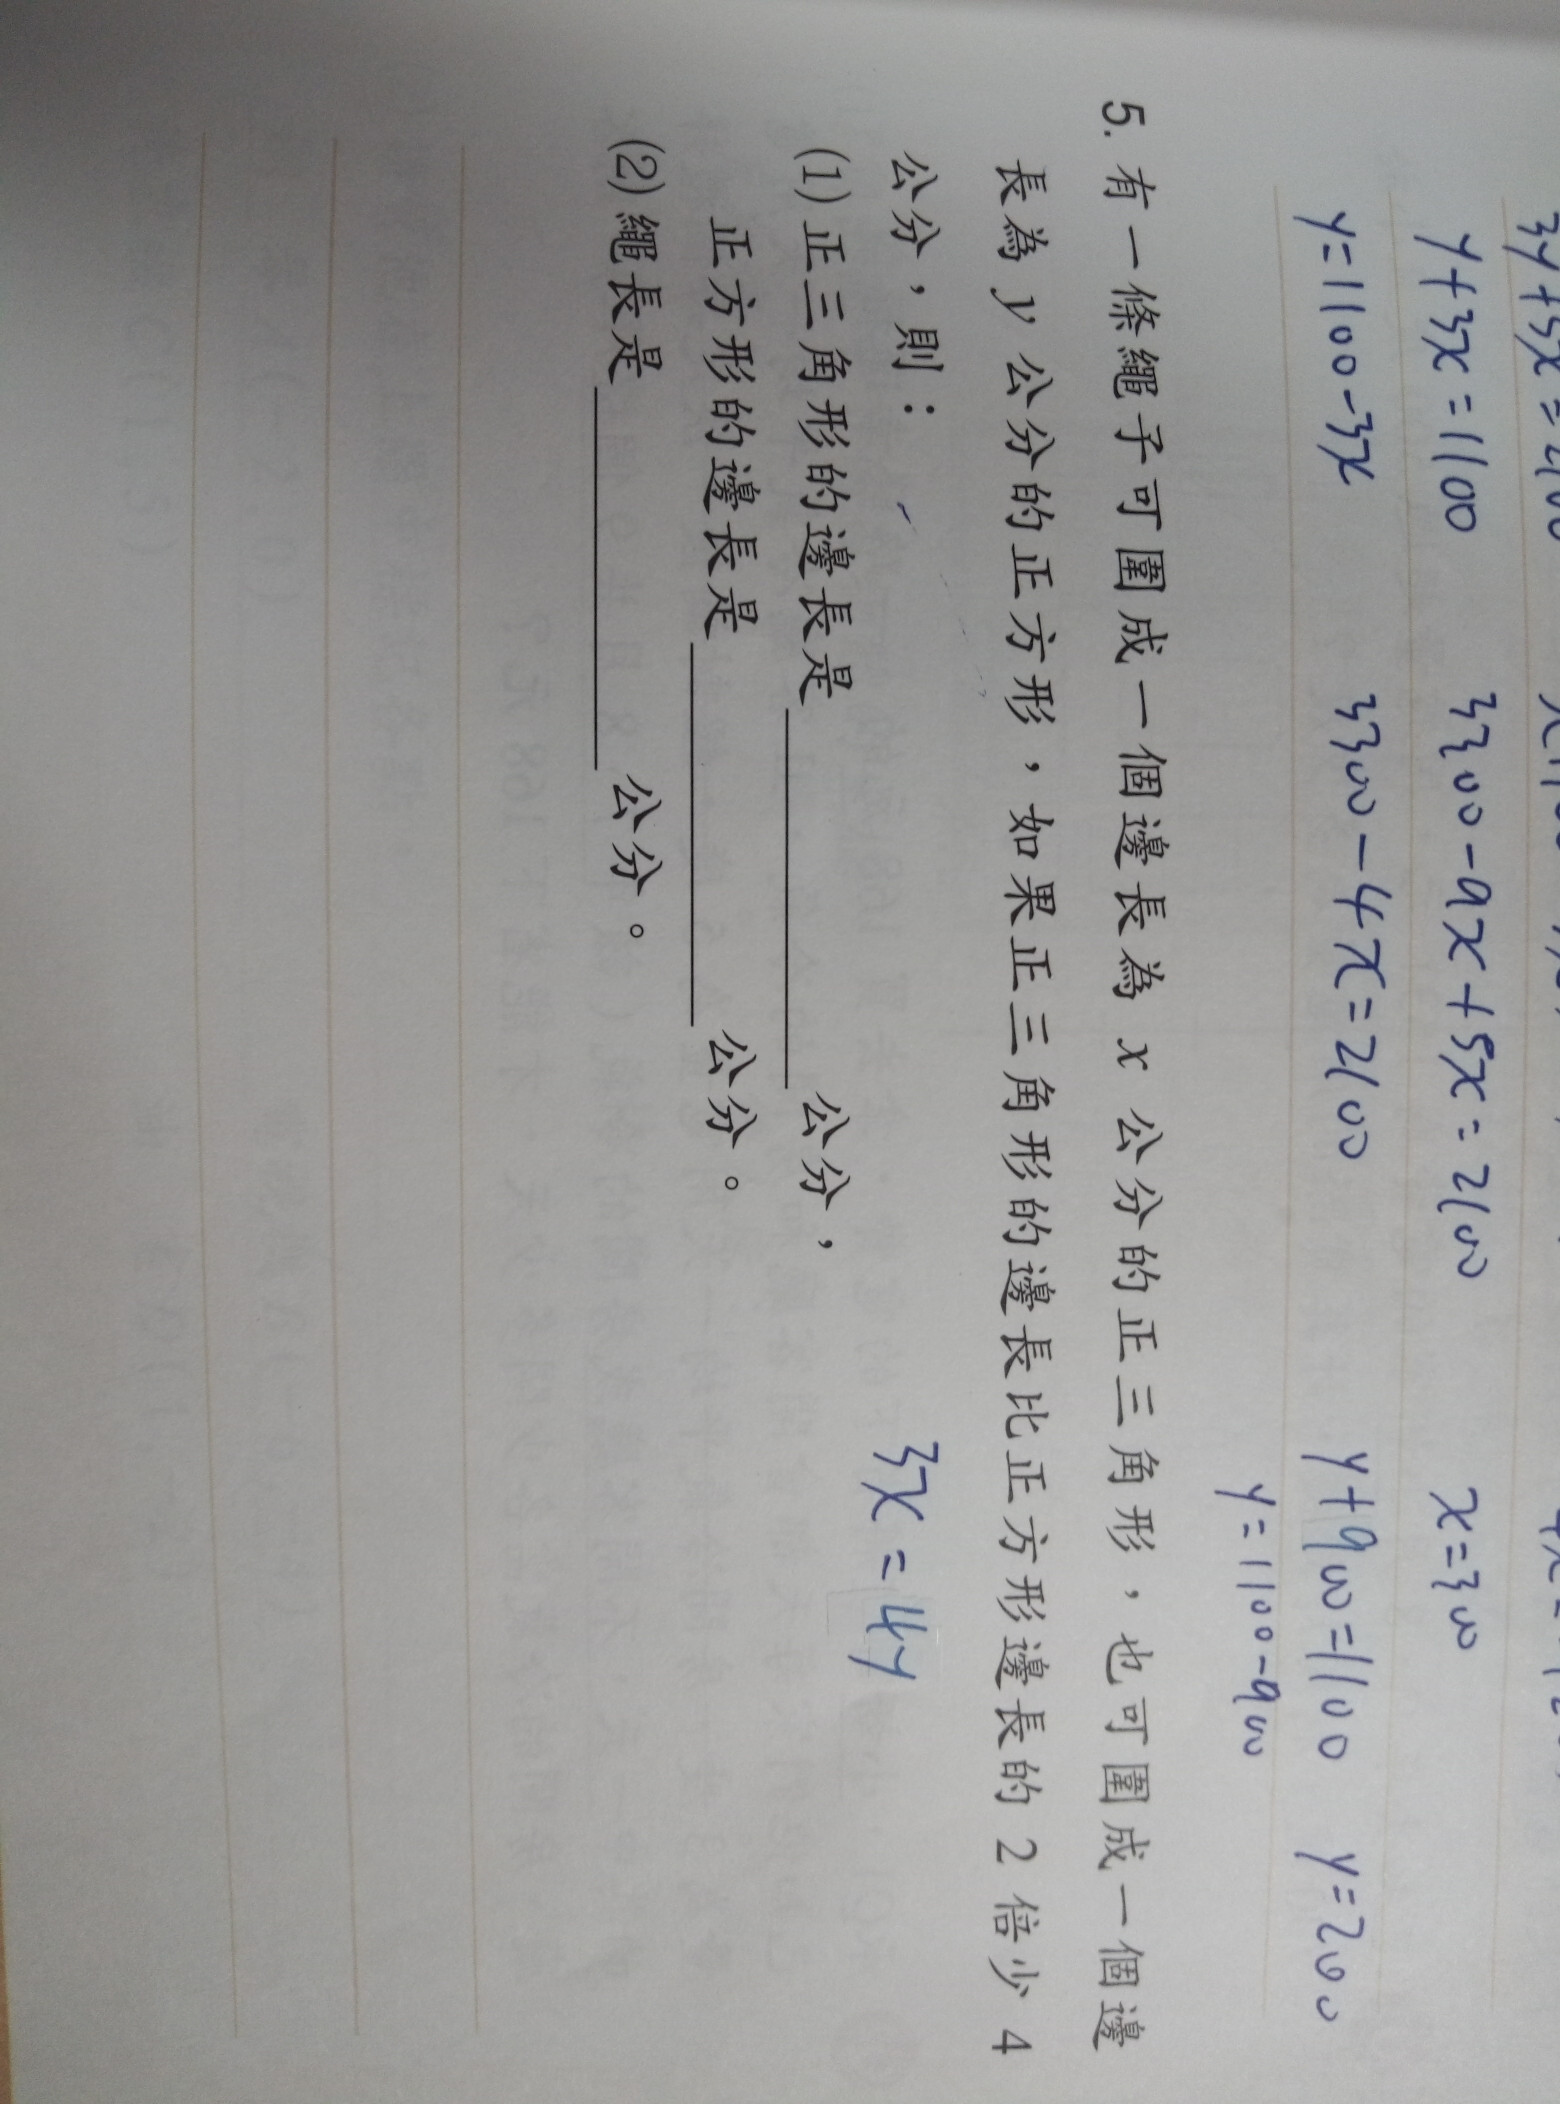 3y+5x=2100
y+3x=1100 3300-9x+5x=2100 x=300
y=1100-3x 3300-4x=2100 y+900=1100 y=200
y=1100-900
5. 有一條繩子可圍成一個邊長為 x 公分的正三角形，也可圍成一個邊
長為 y 公分的正方形，如果正三角形的邊長比正方形邊長的 2 倍少 4
公分，則：
3x=4y
(1) 正三角形的邊長是 公分，
正方形的邊長是 公分。
(2) 繩長是 公分。